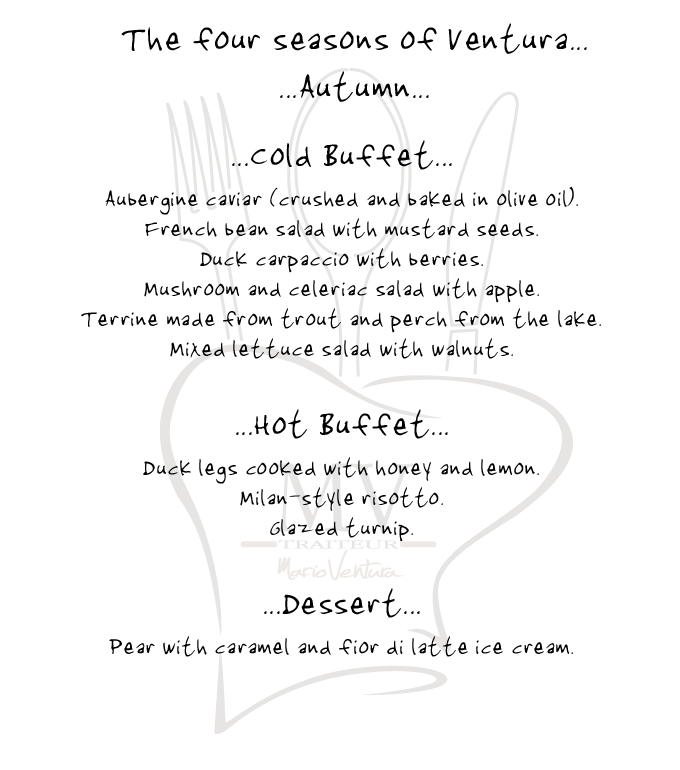 The four seasons of Ventura...
...Autumn...
...Cold Buffet...
Aubergine caviar (crushed and baked in olive oil).
French bean salad with mustard seeds.
Duck carpaccio with berries.
Mushroom and celeriac salad with apple.
Terrine made from trout and perch from the lake.
Mixed lettuce salad with walnuts.
...Hot Buffet...
Duck legs cooked with honey and lemon.
Milan-style risotto.
Glazed turnip.
MV
TRAITEUR
Mario Ventura
...Dessert...
Pear with caramel and fior di latte ice cream.